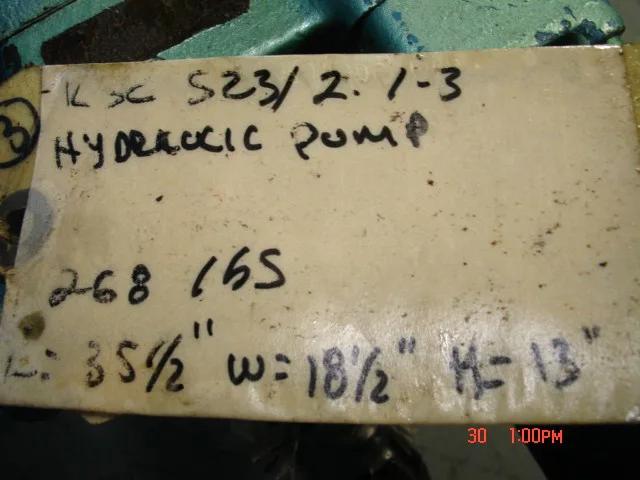 KSC S23/2. 1-3
③
HYDRAULIC PUMP
268 lbS
L: 35 1/2" W= 18 1/2" H= 13"
30 1:00PM